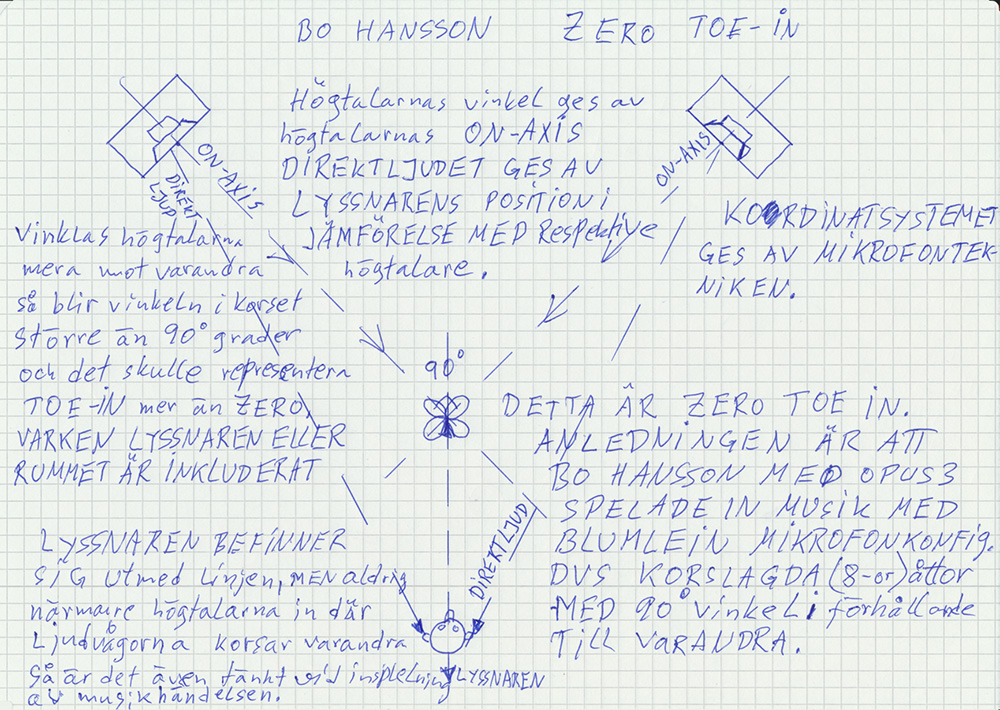 BO HANSSON ZERO TOE-IN
Högtalarnas vinkel ges av
högtalarnas ON-AXIS
DIREKTLJUDET GES AV
LYSSNARENS POSITION I
JÄMFÖRELSE MED Respektive
högtalare.
ON-AXIS
DIREKT
LJUD
ON-AXIS
KOORDINATSYSTEMET
GES AV MIKROFONTEK-
NIKEN.
Vinklas högtalarna
mera mot varandra
så blir vinkeln i korset
större än 90° grader
och det skulle representera
TOE-IN mer än ZERO,
VARKEN LYSSNAREN ELLER
RUMMET ÄR INKLUDERAT
90°
DETTA ÄR ZERO TOE IN.
ANLEDNINGEN ÄR ATT
BO HANSSON MED OPUS3
SPELADE IN MUSIK MED
BLUMLEIN MIKROFONKONFIG.
DVS KORSLAGDA (8-or) åttor
MED 90° vinkel i förhållande
TILL VARANDRA.
LYSSNAREN BEFINNER
SIG utmed linjen, MEN aldrig
närmare högtalarna in där
Ljudvågorna korsar varandra
så är det även tänkt vid inspelning
av musikhändelsen.
DIREKTLJUD
LYSSNAREN